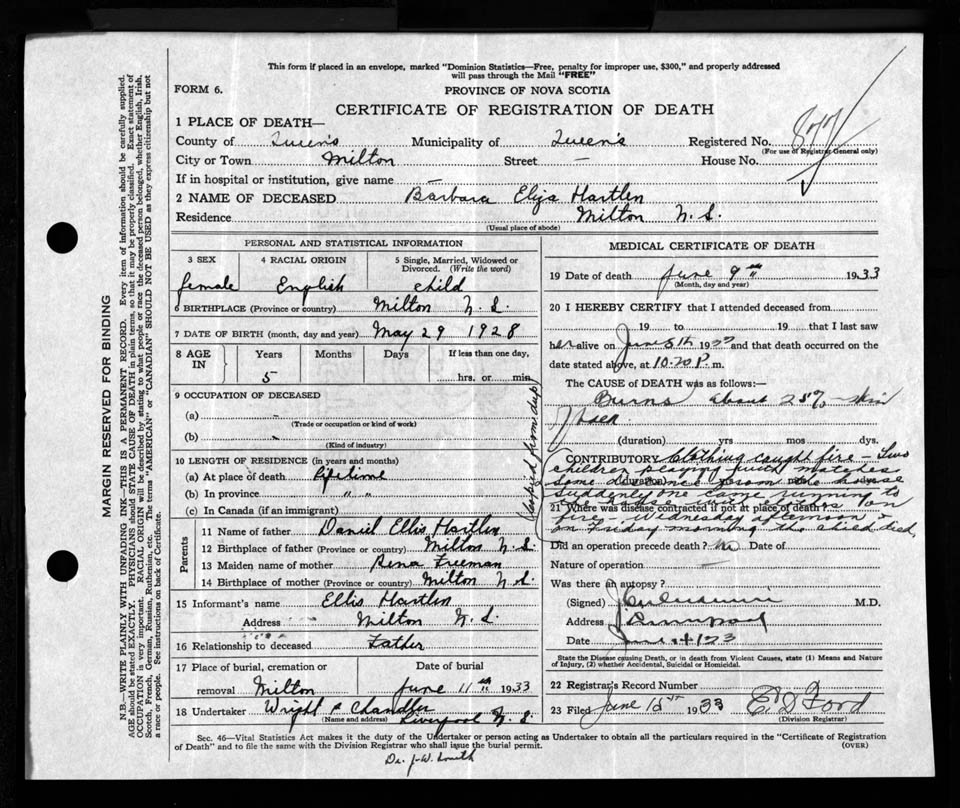 This form if placed in an envelope, marked "Dominion Statistics—Free, penalty for improper use, $300," and properly addressed
will pass through the Mail "FREE"
FORM 6.
PROVINCE OF NOVA SCOTIA
CERTIFICATE OF REGISTRATION OF DEATH
1 PLACE OF DEATH—
County of Queen's Municipality of Queen's Registered No. 877
(For use of Registrar General only)
City or Town Milton Street — House No.
If in hospital or institution, give name —
2 NAME OF DECEASED Barbara Eliza Hartlen
Residence Milton N.S.
(Usual place of abode)
MARGIN RESERVED FOR BINDING
N.B.—WRITE PLAINLY WITH UNFADING INK—THIS IS A PERMANENT RECORD. Every item of information should be carefully supplied.
AGE should be stated EXACTLY. PHYSICIANS should STATE CAUSE OF DEATH in plain terms, so that it may be properly classified. Exact statement of
OCCUPATION is very important. RACIAL ORIGIN will be described by stating to what people or race the deceased person belonged, whether English, Irish,
Scotch, French, German, Russian, Ruthenian, etc. The terms "AMERICAN" or "CANADIAN" SHOULD NOT BE USED as they express citizenship but not
a race or people. See instructions on back of Certificate.
PERSONAL AND STATISTICAL INFORMATION
3 SEX
female
4 RACIAL ORIGIN
English
5 Single, Married, Widowed or
Divorced. (Write the word)
child
6 BIRTHPLACE (Province or country) Milton N.S.
7 DATE OF BIRTH (month, day and year) May 29 1928
8 AGE IN
Years Months Days If less than one day,
5 hrs. or min.
9 OCCUPATION OF DECEASED
(a) -
(Trade or occupation or kind of work)
(b) -
(Kind of industry)
10 LENGTH OF RESIDENCE (in years and months)
(a) At place of death Lifetime
(b) In province " "
(c) In Canada (if an immigrant)
Parents
11 Name of father Daniel Ellis Hartlen
12 Birthplace of father (Province or country) Milton N.S.
13 Maiden name of mother Rena Freeman
14 Birthplace of mother (Province or country) Milton N.S.
15 Informant's name Ellis Hartlen
Address Milton N.S.
16 Relationship to deceased Father
17 Place of burial, cremation or
removal Milton
Date of burial
June 11th 1933
18 Undertaker Wright & Chandler
(Name and address) Liverpool N.S.
MEDICAL CERTIFICATE OF DEATH
19 Date of death June 9th 1933
(Month, day and year)
20 I HEREBY CERTIFY that I attended deceased from
19 to 19 that I last saw
her alive on June 1933 and that death occurred on the
date stated above, at 10.20 P. m.
The CAUSE of DEATH was as follows:—
Burns about 25% skin
(duration) yrs mos dys.
CONTRIBUTORY Clothing caught fire - Two
children playing with matches
(duration)
some distance from the house
suddenly one came running to
21 Where was disease contracted if not at place of death?
the house with clothes on
fire - Wednesday afternoon &
on Friday morning the child died.
Did an operation precede death? no Date of
Nature of operation —
Was there an autopsy?
(Signed) M.D.
Address Liverpool
Date
State the Disease causing Death, or in death from Violent Causes, state (1) Means and Nature
of Injury, (2) whether Accidental, Suicidal or Homicidal.
22 Registrar's Record Number
23 Filed June 15th 1933 E D Ford
(Division Registrar)
Sec. 46—Vital Statistics Act makes it the duty of the Undertaker or person acting as Undertaker to obtain all the particulars required in the "Certificate of Registration
of Death" and to file the same with the Division Registrar who shall issue the burial permit.
(OVER)
Dr. J. W. Smith